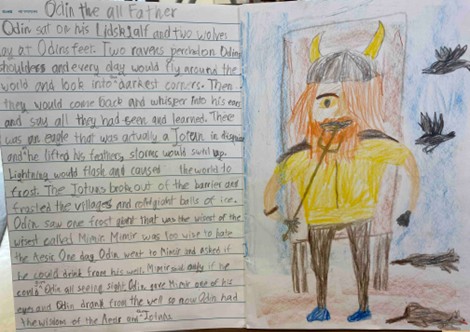 Odin the all Father
Odin sat on his Lidskjalf and two wolves
lay at Odins feet. Two ravens perched on Odins
shoulders and every day would fly around the
world and look into darkest corners. Then
they would come back and whisper into his ears
and say all they had seen and learned. There
was an eagle that was actually a Jotun in disguise
and he lifted his feathers, storms would swirl up.
Lightning would flash and caused the world to
frost. The Jotuns broke out of the barrier and
frosted the villages and rold giant balls of ice.
Odin saw one frost giant that was the wisest of the
wisest called Mimir. Mimir was too wise to hate
the Aesir. One day Odin went to Mimir and asked if
he could drink from his well. Mimir said only if he
could all seeing sight. Odin gave Mimir one of his
eyes and Odin drank from the well so now Odin had
the wisdom of the Aesir and Jotuns